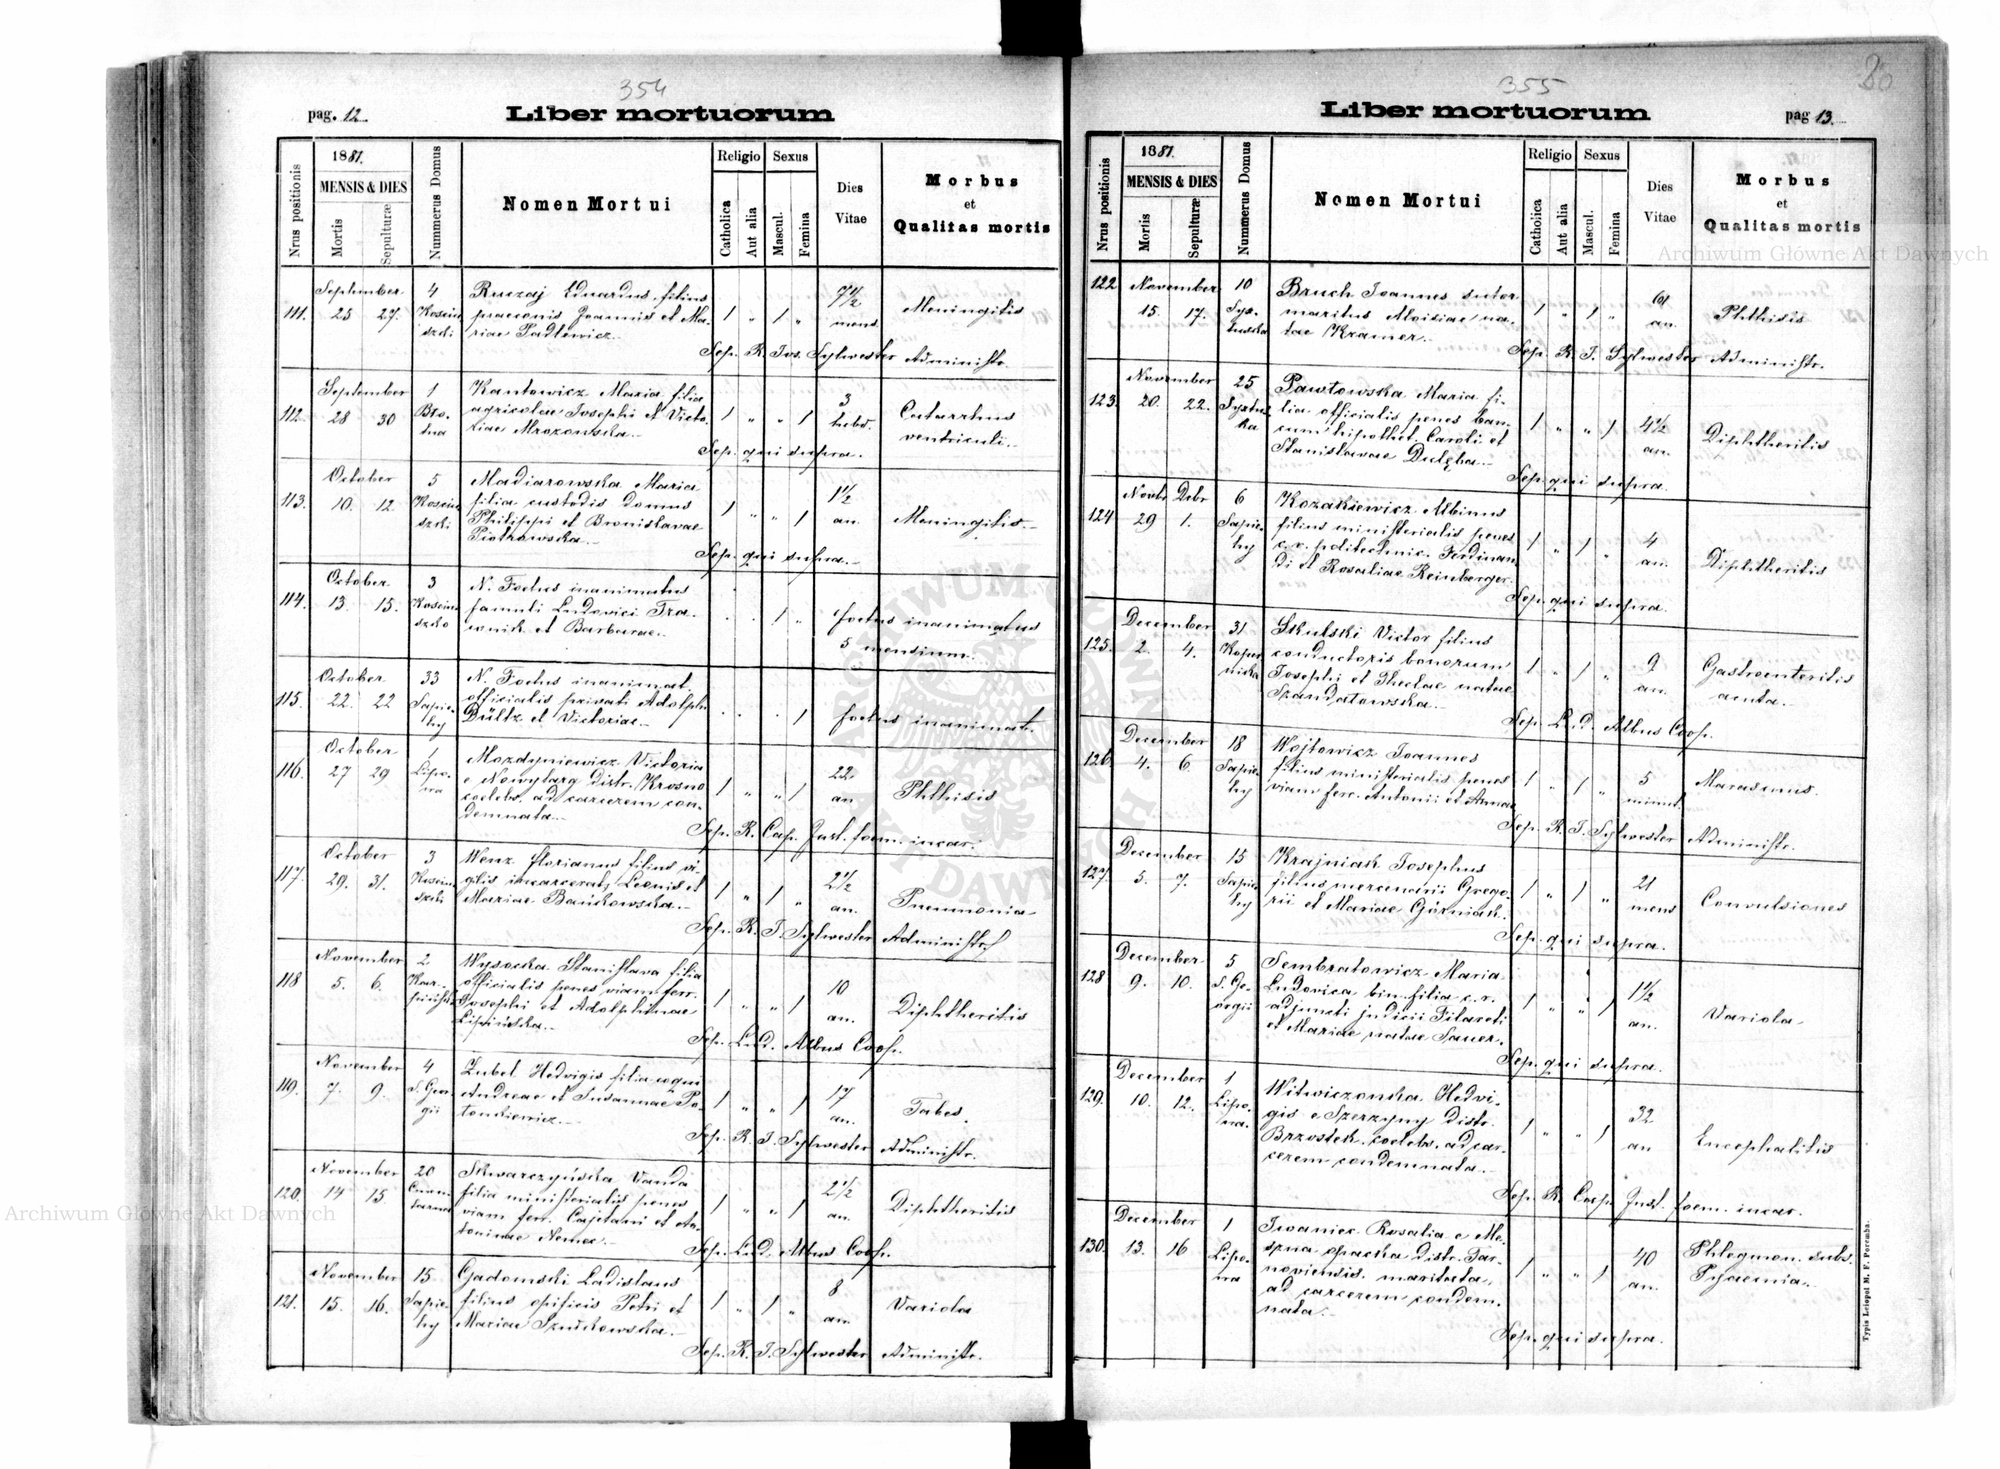 354
pag. 12.
Liber mortuorum
Nrus positionis
1881.
MENSIS & DIES
Mortis
Sepulturæ
Nummerus Domus
Nomen Mortui
Religio
Catholica
Aut alia
Sexus
Mascul.
Femina
Dies
Vitae
Morbus
et
Qualitas mortis
111. September 25 27. 4
Ruczaj Eduardus filius
praeconis Joannis et Ma-
riae Padlewicz.
1 " 1 " 7 1/2 mens.
Meningitis
Sep. R. Jos. Sylwester Administr.
112. September 28 30 1
Kantowicz Maria filia
agricolae Josephi et Victo-
riae Mrozowska.
1 " " 1 3 hebd.
Catarrhus
ventriculi.
Sep. qui supra.
113. October 10. 12. 5
Madiarowska Maria
filia custodis domus
Philippi et Bronislavae
Piotrowska.
1 " " 1 1 1/2 an.
Meningitis.
Sep. qui supra.
114. October 13. 15. 3
N. Foetus inanimatus
famuli Ludovici Tra-
conik et Barbarae.
foetus inanimatus
5 mensium.
115. October 22. 22 33 Sapie-
hy
N. Foetus inanimat.
officialis privati Adolph
Dültz et Victoriae.
foetus inanimat.
116. October 27 29 1
Mozdyniewicz Victoria
e Nowytarg Distr. Krosno
coelebs. ad carcerem con-
demnata.
1 " " 1 22 an
Phthisis
Sep. R. Cap. Inst. foem. incar.
117. October 29. 31. 3
Wenz Florianus filius vi-
gilis incarcerat. Leonis et
Mariae Bańkowska.
1 " 1 " 2 1/2 an.
Pneumonia
Sep. R. J. Sylwester Administr.
118 November 5. 6. 2
Wysocka Stanislava filia
officialis penes viam ferr.
Josephi et Adolphinae
Lipińska.
1 " " 1 10 an.
Diphtheritis
Sep. Lud. Albus Coop.
119. November 7. 9. 4
S. Geor-
gii
Zubel Hedvigis filia coqui
Andreae et Susannae Po-
tonkiewicz.
1 " " 1 17 an.
Tabes.
Sep. R. J. Sylwester Administr.
120. November 14 15. 20
Skwarczyńska Vanda
filia ministerialis penes
viam ferr. Cajetani et An-
toninae Nemec.
1 " " 1 2 1/2 an.
Diphtheritis
Sep. Lud. Albus Coop.
121. November 15. 16. 15 Sapie-
hy
Gadomski Ladislaus
filius opificis Petri et
Mariae Szuszkowska.
1 " 1 " 8 an.
Variola
Sep. R. J. Sylwester Administr.
355
80
Liber mortuorum
pag 13.
Nrus positionis
1881.
MENSIS & DIES
Mortis
Sepulturæ
Nummerus Domus
Nomen Mortui
Religio
Catholica
Aut alia
Sexus
Mascul.
Femina
Dies
Vitae
Morbus
et
Qualitas mortis
122. November 15. 17. 10
Bruch Joannes sutor
maritus Aloisiae na-
tae Kramer.
1 " 1 " 61 an.
Phthisis
Sep. R. J. Sylwester Administr.
123. November 20. 22. 25 Syxtus-
ka
Pawłowska Maria fi-
lia officialis penes ban-
cum hipothet. Caroli et
Stanislavae Dulęba.
1 " " 1 4 1/2 an.
Diphtheritis
Sep. qui supra.
124 Novbr Debr 29 1. 6 Sapie-
hy
Kozakiewicz Albinus
filius ministerialis penes
c. r. politechnic. Ferdinan-
di et Rosaliae Reinberger.
1 " 1 " 4 an.
Diphtheritis
Sep. qui supra.
125. December 2. 4. 31 Koper-
nika
Skulski Victor filius
conductoris bonorum
Josephi et Theclae natae
Szandatowska.
1 " 1 " 9 an.
Gastroenteritis
acuta.
Sep. Lud. Albus Coop.
126. December 4. 6. 18 Sapie-
hy
Wojtowicz Joannes
filius ministerialis penes
viam ferr. Antonii et Annae
1 " 1 " 5 minut.
Marasmus.
Sep. R. J. Sylwester Administr.
127. December 5. 7. 15 Sapie-
hy
Krajniak Josephus
filius mercenarii Grego-
rii et Mariae Górniak.
1 " 1 " 21 mens
Convulsiones
Sep. qui supra.
128 December 9. 10. 5 S. Ge-
orgii
Sembratowicz Maria
Ludovica bin. filia c. r.
adjuncti judicii Filareti
et Mariae natae Sauer.
1 " " 1 1 1/2 an.
Variola
Sep. qui supra.
129. December 10. 12. 1
Witwiczonka Hedvi-
gis e Szerzyny Distr.
Brzostek. coelebs. ad car-
cerem condemnata.
1 " " 1 32 an
Encephalitis
Sep. R. Coop. Inst. foem. incar.
130. December 13. 16 1
Iwaniec Rosalia e Me-
szna opacka Distr. Tar-
noviensis. maritata.
ad carcerem condem-
nata.
1 " " 1 40 an.
Phlegmon. subs.
Pyaemia.
Sep. qui supra.
Typis Leiopol M. F. Poremba.
Archiwum Główne Akt Dawnych
Archiwum Główne Akt Dawnych
ARCHIWUM GŁÓWNE AKT DAWNYCH